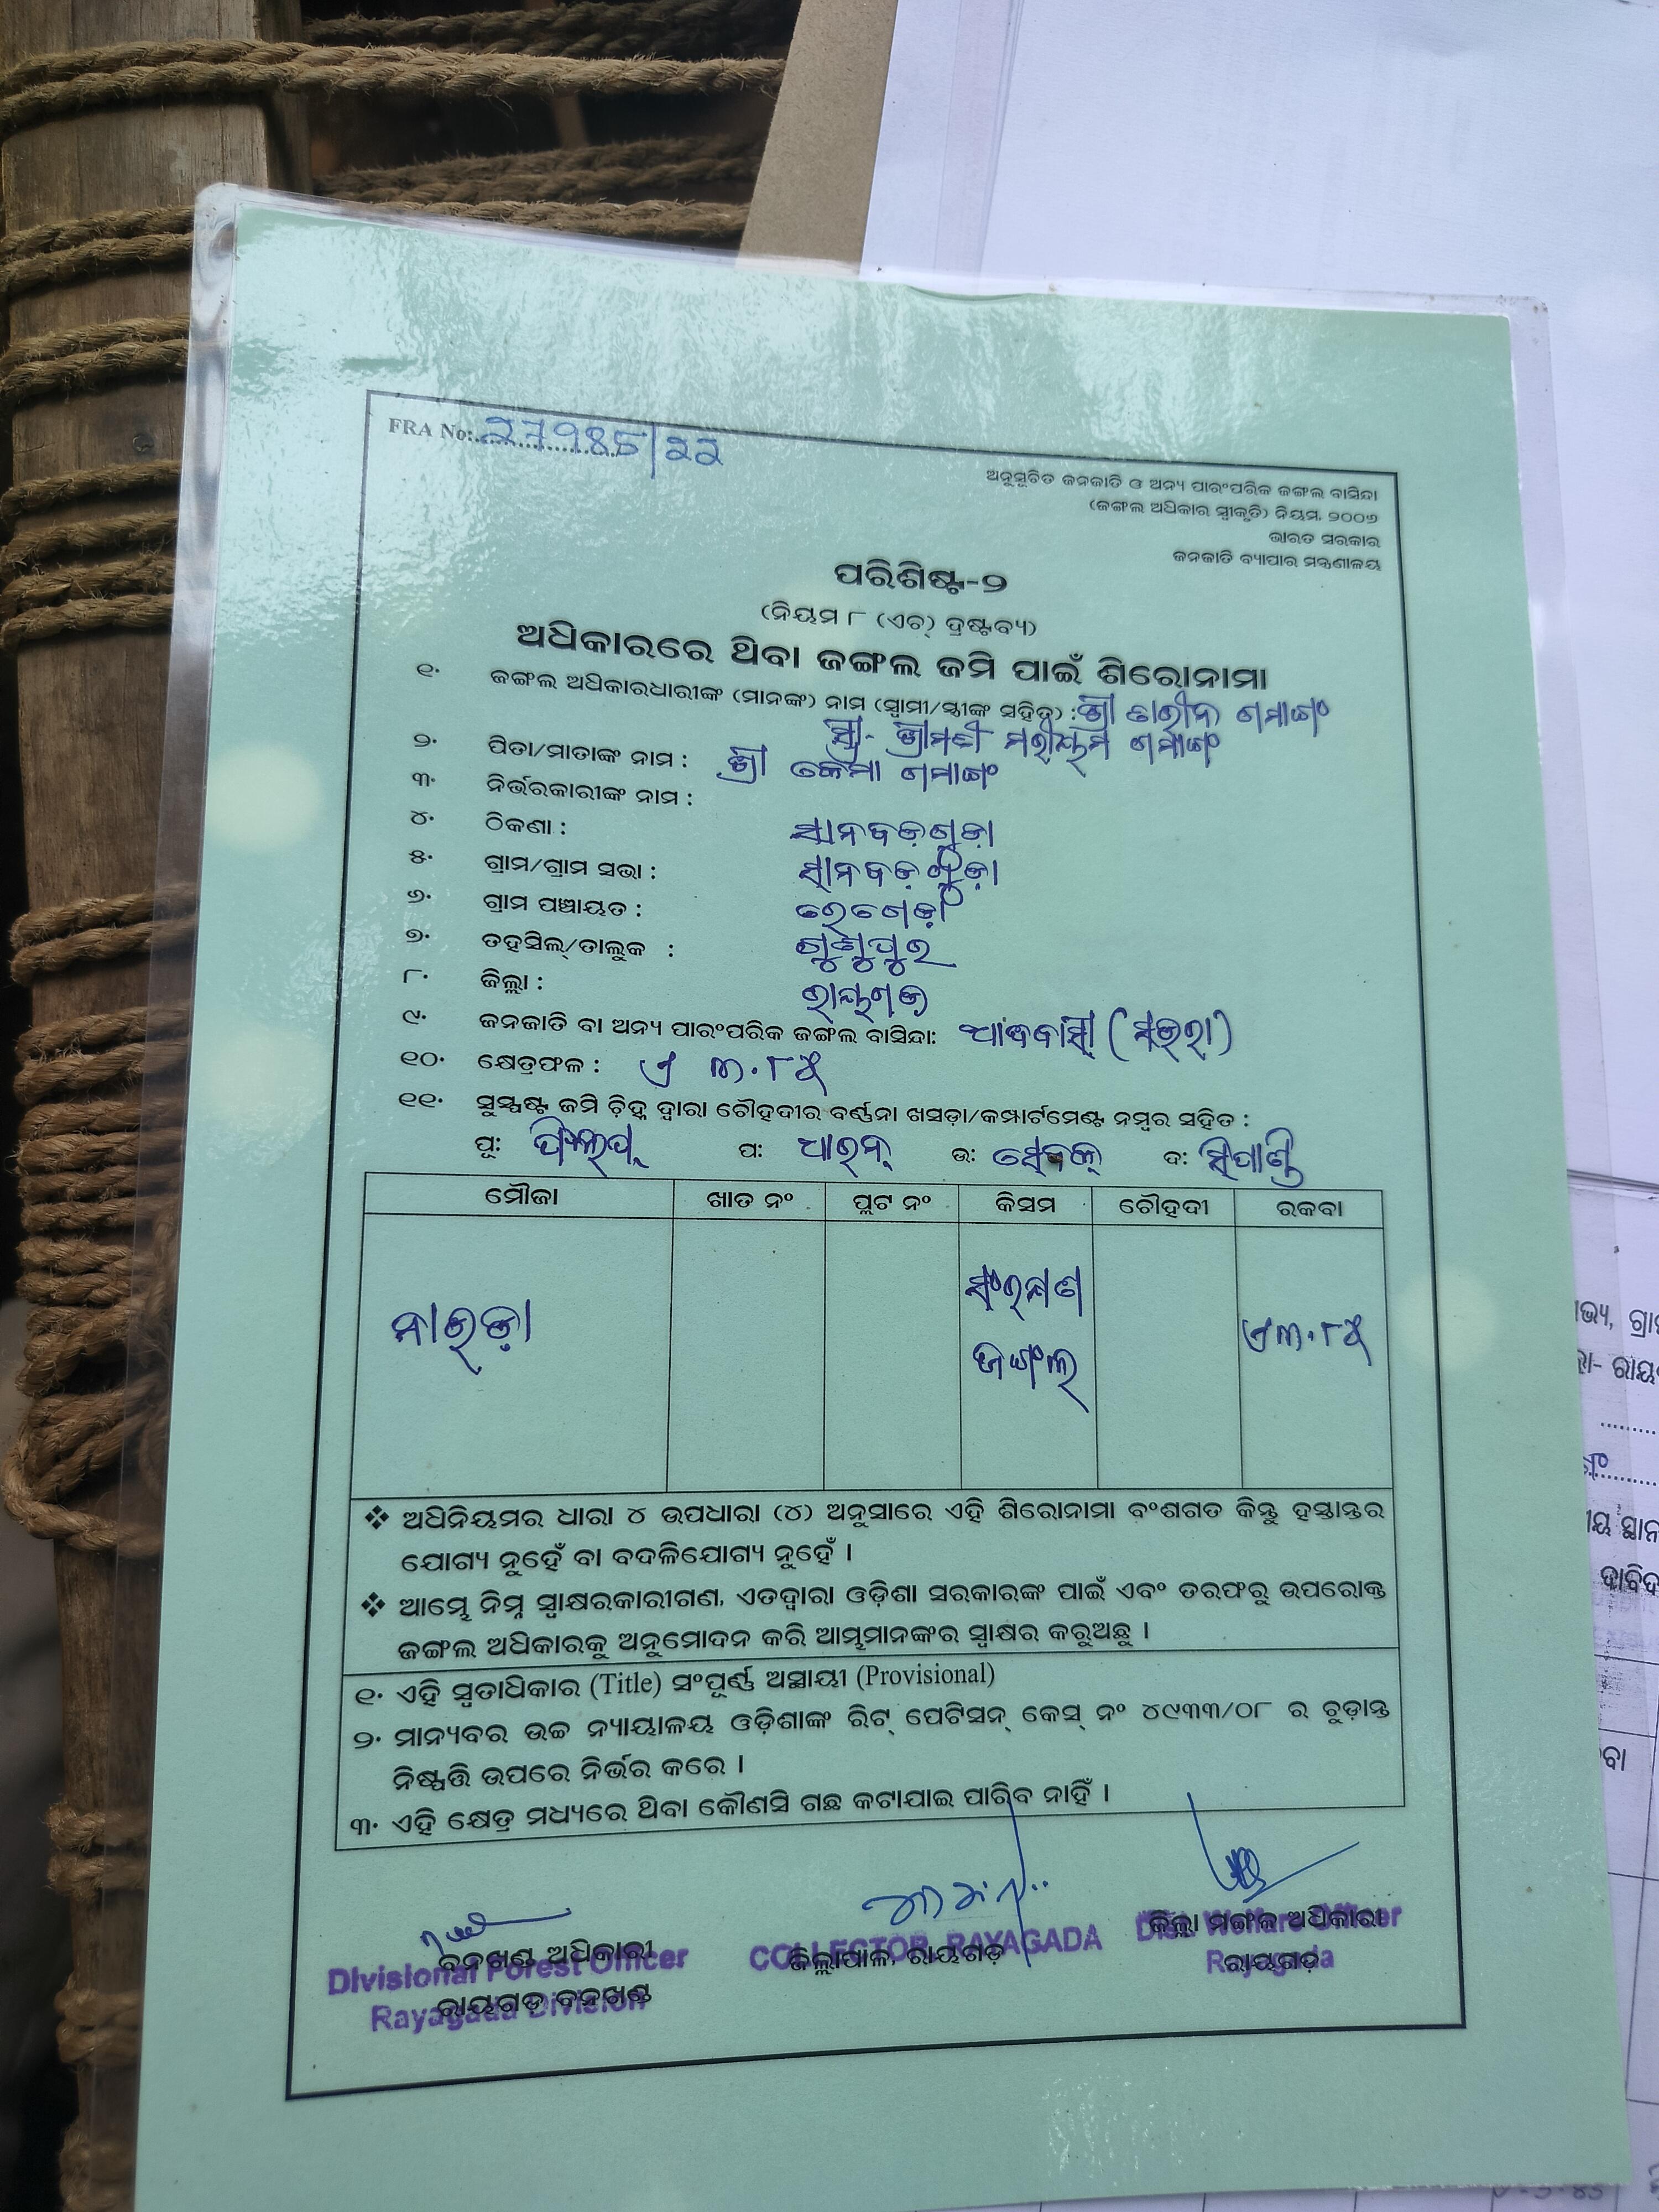 FRA No: 27985/22
ଅନୁସୂଚିତ ଜନଜାତି ଓ ଅନ୍ୟ ପାରଂପରିକ ଜଙ୍ଗଲ ବାସିନ୍ଦା
(ଜଙ୍ଗଲ ଅଧିକାର ସ୍ୱୀକୃତି) ନିୟମ, ୨୦୦୭
ଭାରତ ସରକାର
ଜନଜାତି ବ୍ୟାପାର ମନ୍ତ୍ରଣାଳୟ
ପରିଶିଷ୍ଟ-୨
(ନିୟମ ୮ (ଏଚ୍) ଦ୍ରଷ୍ଟବ୍ୟ)
ଅଧିକାରରେ ଥିବା ଜଙ୍ଗଲ ଜମି ପାଇଁ ଶିରୋନାମା
୧· ଜଙ୍ଗଲ ଅଧିକାରଧାରୀଙ୍କ (ମାନଙ୍କ) ନାମ (ସ୍ୱାମୀ/ସ୍ତ୍ରୀଙ୍କ ସହିତ) : ଶ୍ରୀ ଗମାଙ୍ଗ
ସ୍ତ୍ରୀ- ଶ୍ରୀମତୀ ଗମାଙ୍ଗ
୨· ପିତା/ମାତାଙ୍କ ନାମ : ଶ୍ରୀ ଗମାଙ୍ଗ
୩· ନିର୍ଭରକାରୀଙ୍କ ନାମ :
୪· ଠିକଣା : ସାନବଡ଼ଗୁଡ଼ା
୫· ଗ୍ରାମ/ଗ୍ରାମ ସଭା : ସାନବଡ଼ଗୁଡ଼ା
୬· ଗ୍ରାମ ପଞ୍ଚାୟତ :
୭· ତହସିଲ୍/ତାଲୁକ : ଗୁଣୁପୁର
୮· ଜିଲ୍ଲା : ରାୟଗଡ
୯· ଜନଜାତି ବା ଅନ୍ୟ ପାରଂପରିକ ଜଙ୍ଗଲ ବାସିନ୍ଦା: ଆଦିବାସୀ (ସଉରା)
୧୦· କ୍ଷେତ୍ରଫଳ : ଏ ୩.୮୫
୧୧· ସୁସ୍ପଷ୍ଟ ଜମି ଚ଼ିହ୍ନ ଦ୍ୱାରା ଚୌହଦୀର ବର୍ଣ୍ଣନା ଖସଡ଼ା/କମ୍ପାର୍ଟମେଣ୍ଟ ନମ୍ବର ସହିତ :
ପୂ: ପ: ଉ: ଦ:
ମୌଜା ଖାତ ନଂ ପ୍ଲଟ ନଂ କିସମ ଚୌହଦୀ ରକବା
ସଂରକ୍ଷଣ
ନାଇଡ଼ା ଏ ୩.୮୫
ଜଙ୍ଗଲ
❖ ଅଧିନିୟମର ଧାରା ୪ ଉପଧାରା (୪) ଅନୁସାରେ ଏହି ଶିରୋନାମା ବଂଶଗତ କିନ୍ତୁ ହସ୍ତାନ୍ତର
ଯୋଗ୍ୟ ନୁହେଁ ବା ବଦଳିଯୋଗ୍ୟ ନୁହେଁ ।
❖ ଆମ୍ଭେ ନିମ୍ନ ସ୍ୱାକ୍ଷରକାରୀଗଣ, ଏତଦ୍ୱାରା ଓଡ଼ିଶା ସରକାରଙ୍କ ପାଇଁ ଏବଂ ତରଫରୁ ଉପରୋକ୍ତ
ଜଙ୍ଗଲ ଅଧିକାରକୁ ଅନୁମୋଦନ କରି ଆମ୍ଭମାନଙ୍କର ସ୍ୱାକ୍ଷର କରୁଅଛୁ ।
୧· ଏହି ସ୍ୱତାଧିକାର (Title) ସଂପୂର୍ଣ୍ଣ ଅସ୍ଥାୟୀ (Provisional)
୨· ମାନ୍ୟବର ଉଚ୍ଚ ନ୍ୟାୟାଳୟ ଓଡ଼ିଶାଙ୍କ ରିଟ୍ ପେଟିସନ୍ କେସ୍ ନଂ ୪୯୩୩/୦୮ ର ଚୁଡ଼ାନ୍ତ
ନିଷ୍ପତ୍ତି ଉପରେ ନିର୍ଭର କରେ ।
୩· ଏହି କ୍ଷେତ୍ର ମଧ୍ୟରେ ଥିବା କୌଣସି ଗଛ କଟାଯାଇ ପାରିବ ନାହିଁ ।
ବନଖଣ୍ଡ ଅଧିକାରୀ
Divisional Forest Officer
ରାୟଗଡ଼ ବନଖଣ୍ଡ
Rayagada Division
COLLECTOR, RAYAGADA
ଜିଲ୍ଲାପାଳ, ରାୟଗଡ଼
ଜିଲ୍ଲା ମଙ୍ଗଳ ଅଧିକାରୀ
Dist. Welfare Officer
ରାୟଗଡ଼
Rayagada